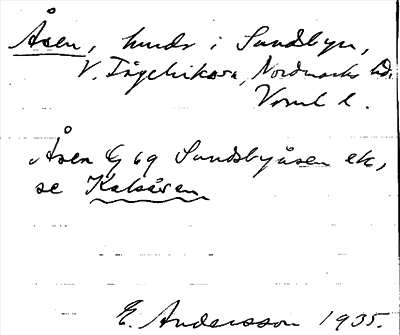 Åsen, hmdr i Sundbyn,
V. Fågelvik sn, Nordmarks hd.
Verml l.
Åsen G 69 Sundsbyåsen ek,
se Kalsåsen
E. Andersson 1935.